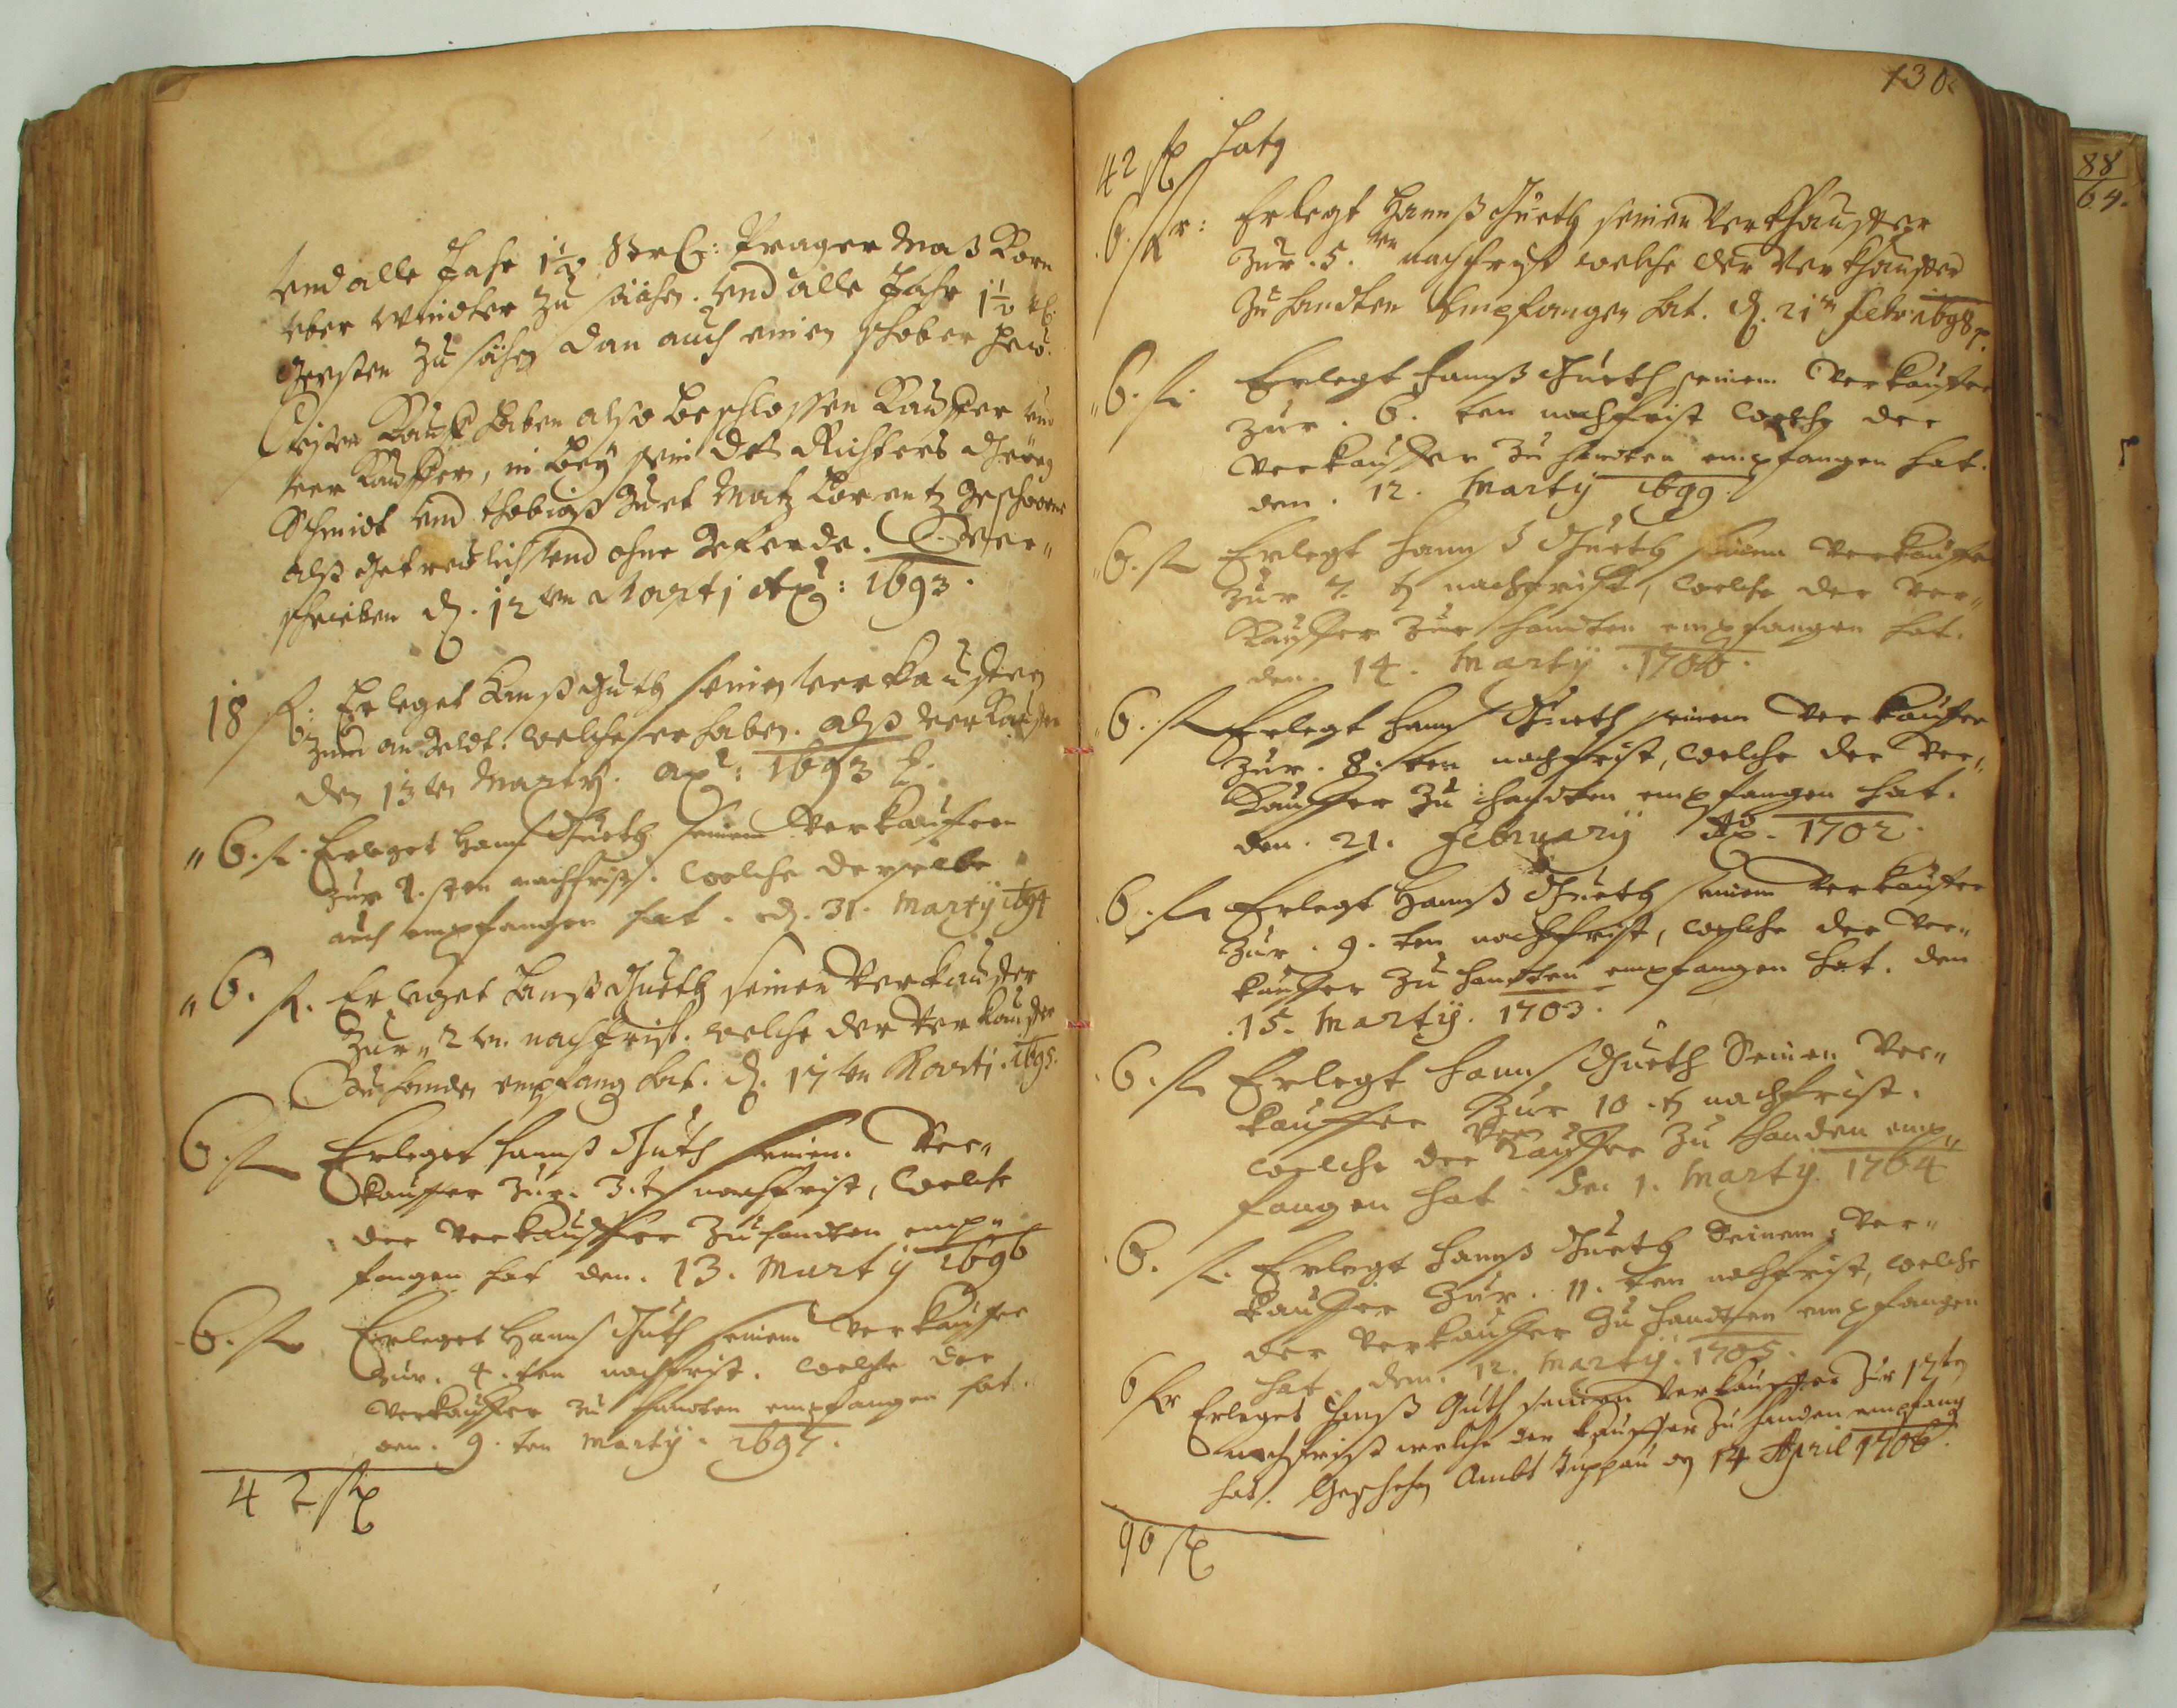 vnd alle Jahr 1½ Prager Maß Korn
vber windter zu säähen. vnd alle Jahr 1½
Gersten zu sähen dan auch einen schober hew.
Diesen Kauff haben also beschlossen Kauffer vnd
ver Kauffer, in beÿ sein deß Richters
Schmidt vnd thobiaß Matz Lorentz geschworne
alß getreulich vnd ohne geferde. Ver„
schrieben d. 12ten Martj : 1693.
18 fl. Erleget Hanß Guth seinen verkauffer
zum an geldt. welches er haben. alß verkauffer
den 13ten Martÿ. 1693
„6. fl. Erleget Hanß Gueth seinem Verkauffern
zur 1.sten nachfrist. welche derselbe
auch empfangen hat. d. 31. Martÿ 1694
„6. fl. Erleget Hanß Gueth seinen Verkauffer
Zur„ 2ten nachfrist. welche der Verkauffer
Zu handen empfang hat. d. 17ten Martj. 1695.
6. fl Erleget Hanß Guth seinen. Ver„
kauffer zur. 3.t nachfrist, welche
der Verkauffer zu handten emp„
fangen hat den. 13. Martÿ 1696
6. fl Erleget Hannß Guth seinem Verkauffer
zur. 4.ten nachfrist. welche der
Verkauffer zu handten empfangen hat.
den. 9.ten Martÿ. 1697.
42 fl
130
88
64.
42 fl Latg
6. fl: Erlegt Hannß Gueth seinen Verkhauffer
Zur. 5.ten nachfrist welche der Verkhauffer
Zu handten Empfangen hat. d. 21ten Febr. 1698
„6. fl. Erlegt Hannß Gueth seinem Verkauffer
zur. 6.ten nachfrist welche der
Verkauffer zu handten empfangen hat.
den. 12. Martÿ 1699.
„6. fl Erlegt Hannß Gueth seinem Verkauffer
zur 7.t nachfrist, welche der Ver„
Kauffer zue handten empfangen hat.
den. 14. Martÿ.
6. fl Erlegt Hannß Gueth seinem Verkauffer
zur. 8.ten nachfrist, welche der Ver„
Kauffer zu handten empfangen hat.
den. 21. Februarÿ Ao. 1702.
6. fl Erlegt Hannß Gueth seinem Verkauffer
zur. 9.ten nachfrist, welche der Ver„
kauffer zu handten empfangen hat. den
.15. Martÿ. 1703.
6. fl Erlegt Hannß Gueth Seinen Ver„
kauffer Zur 10.t nachfrist.
welche der Ver Kauffer zu handen emp„
fangen hat. den 1. Martÿ. 1704
6. fl. Erlegt Hannß Gueth Seinem Ver„
kauffer Zur. 11.ten nachfrist, welche
der Verkauffer zu handten empfangen
hat. dem. 12. Martÿ. 1705.
6 fl Erleget Hanß Guth seinen Verkauffer Zur 12ten
nachfrist welche der kauffer zu handen empfang
hat. Geschehen Ambt Duppau d 14 April 1706.
90 fl